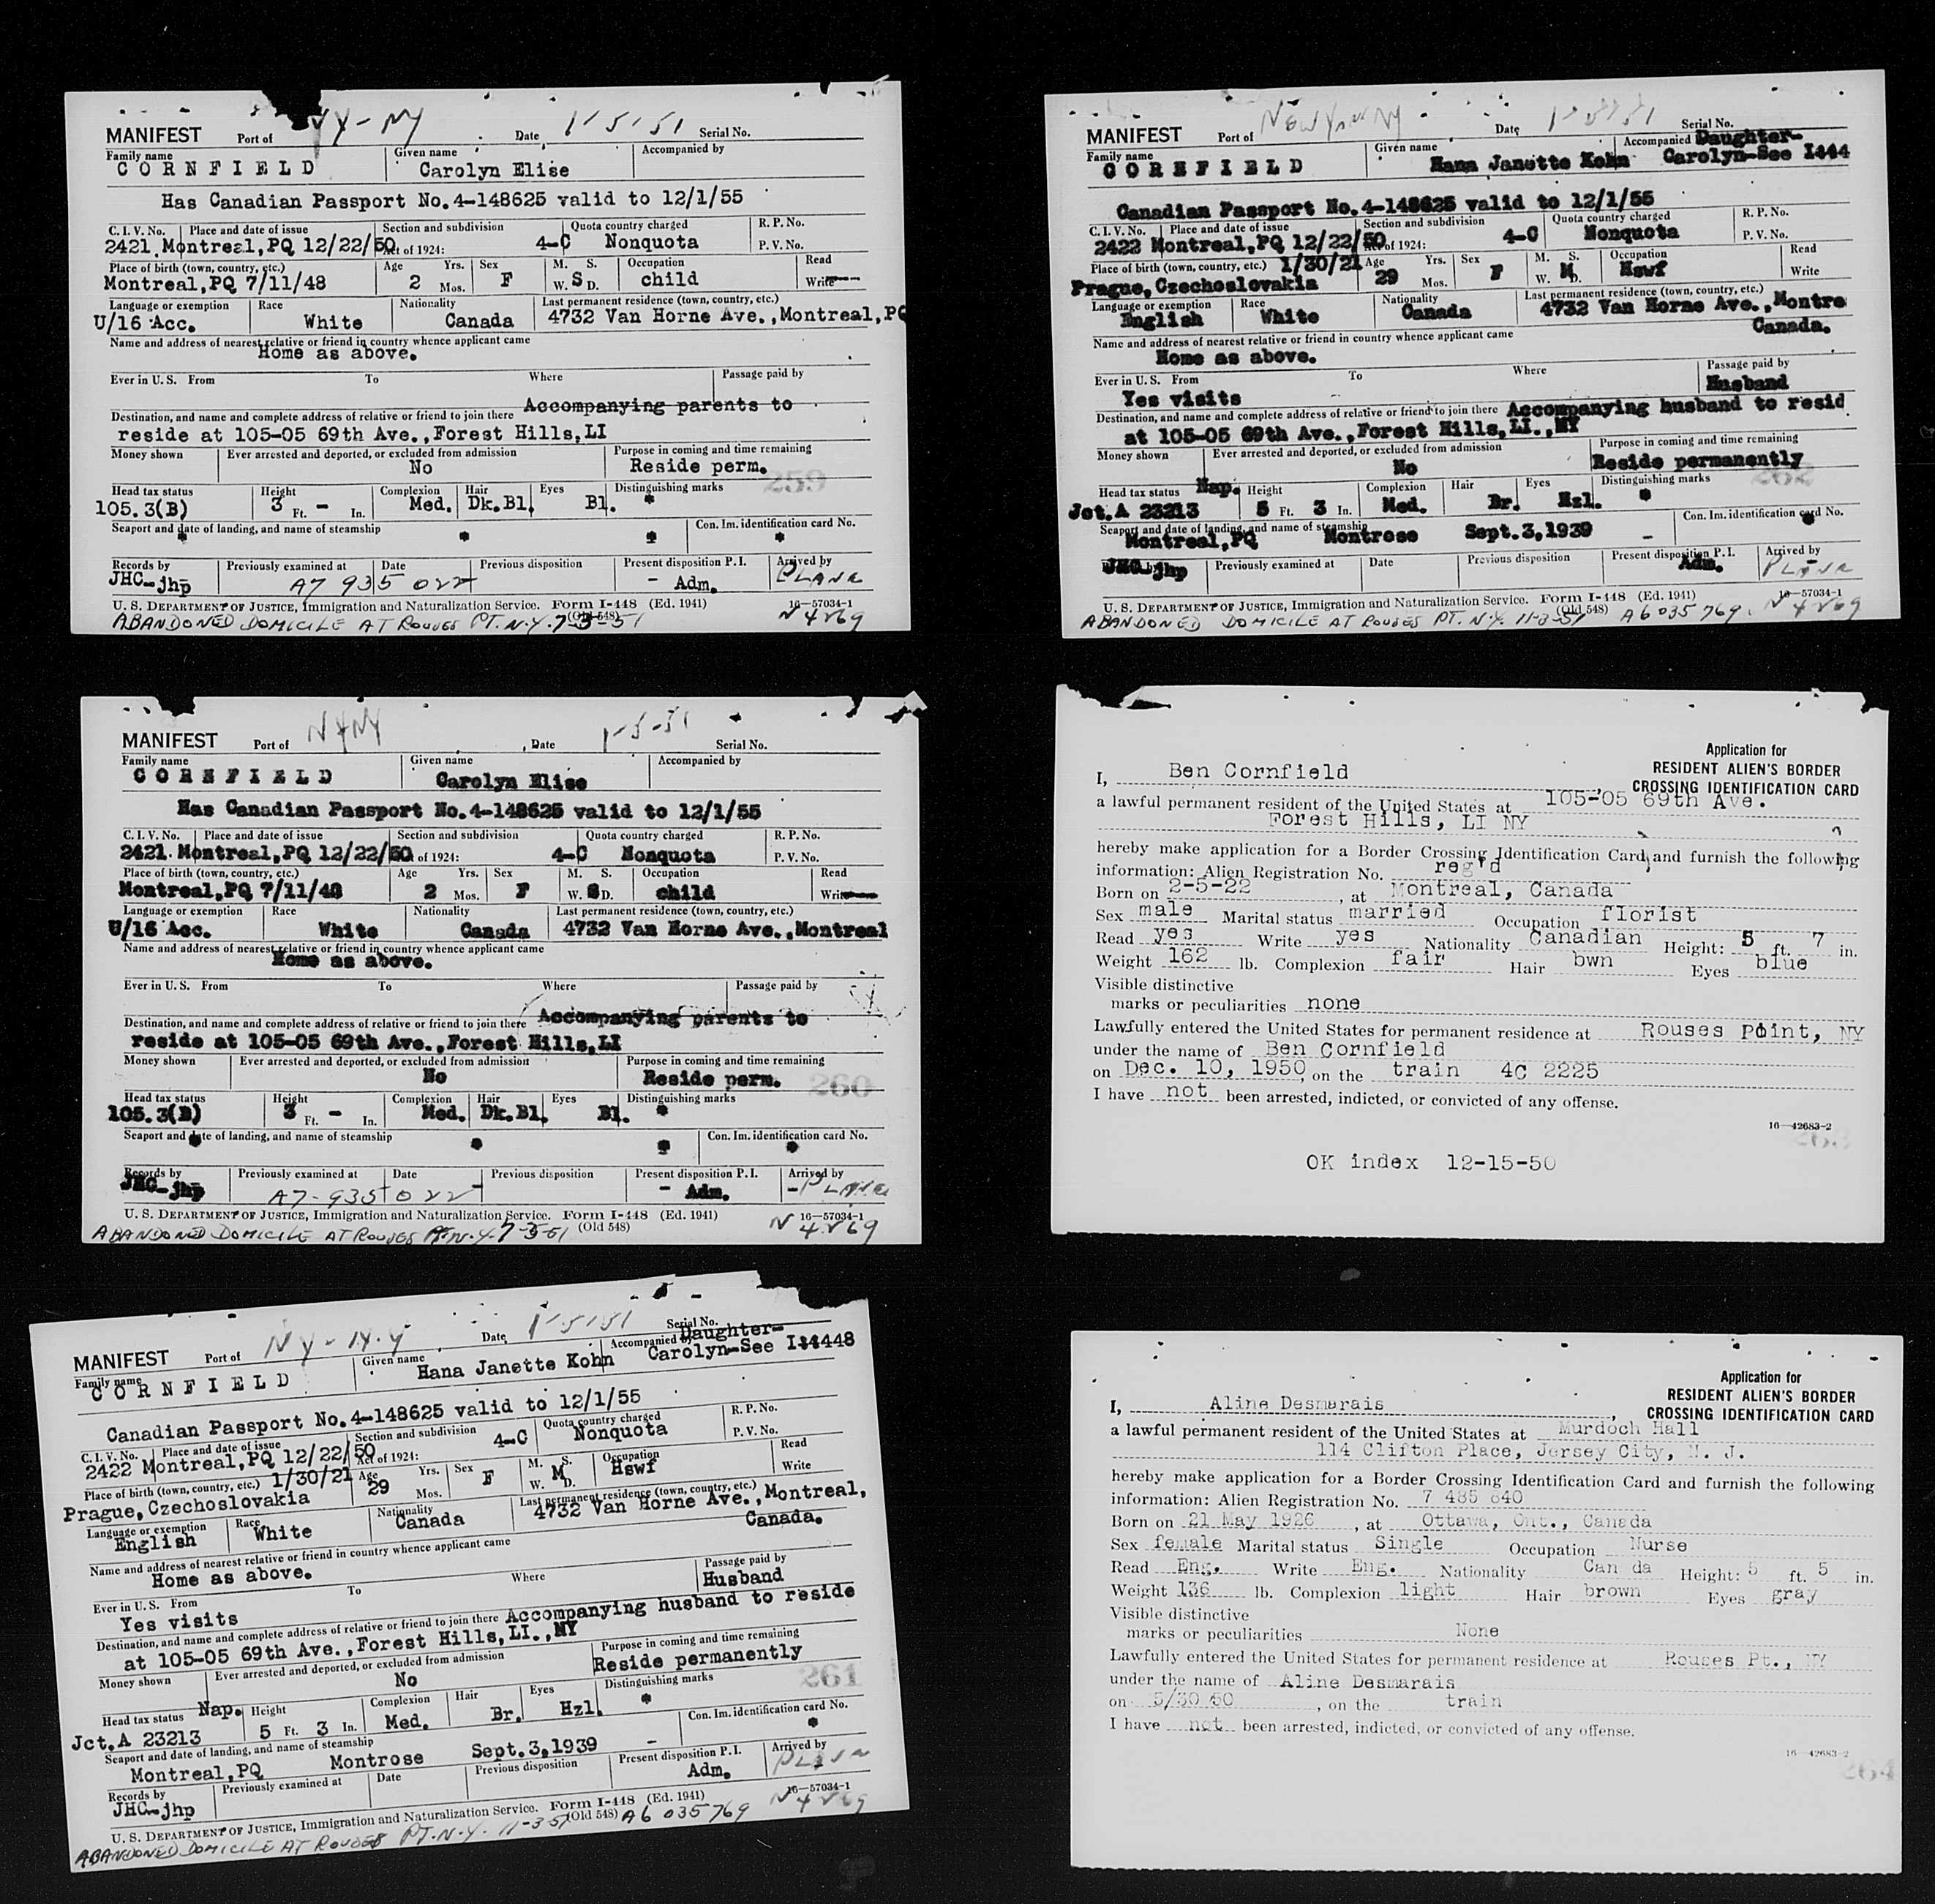 MANIFEST Port of NY - NY Date 1-5-51 Serial No.
Family name Given name Accompanied by
CORNFIELD Carolyn Elise
Has Canadian Passport No.4-148625 valid to 12/1/55
C. I. V. No. Place and date of issue Section and subdivision Quota country charged R. P. No.
2421 Montreal,PQ 12/22/50 Act of 1924: 4-C Nonquota P. V. No.
Place of birth (town, country, etc.) Age Yrs. Sex M. S. Occupation Read
Montreal,PQ 7/11/48 2 Mos. F W. S D. child Write
Language or exemption Race Nationality Last permanent residence (town, country, etc.)
U/16 Acc. White Canada 4732 Van Horne Ave.,Montreal,PQ
Name and address of nearest relative or friend in country whence applicant came
Home as above.
Ever in U. S. From To Where Passage paid by
Destination, and name and complete address of relative or friend to join there Accompanying parents to
reside at 105-05 69th Ave.,Forest Hills,LI
Money shown Ever arrested and deported, or excluded from admission Purpose in coming and time remaining
No Reside perm.
259
Head tax status Height Complexion Hair Eyes Distinguishing marks
105.3(B) 3 Ft. - In. Med. Dk.Bl. Bl. *
Seaport and date of landing, and name of steamship Con. Im. identification card No.
* * * *
Records by Previously examined at Date Previous disposition Present disposition P. I. Arrived by
JHC-jhp A7 935 022 - Adm. PLANE
U. S. DEPARTMENT OF JUSTICE, Immigration and Naturalization Service. Form I-448 (Ed. 1941) 16—57034-1
(Old 548)
ABANDONED DOMICILE AT ROUSES PT. N.Y. 7-3-51 N 4269
MANIFEST Port of New York NY Date 1-5-51 Serial No.
Family name Given name Accompanied by Daughter-
CORNFIELD Hana Janette Kohn Carolyn-See I444
Canadian Passport No.4-148625 valid to 12/1/55
C. I. V. No. Place and date of issue Section and subdivision Quota country charged R. P. No.
2422 Montreal,PQ 12/22/50 Act of 1924: 4-C Nonquota P. V. No.
Place of birth (town, country, etc.) 1/30/21 Age Yrs. Sex M. S. Occupation Read
Prague,Czechoslovakia 29 Mos. F W. M D. Hswf Write
Language or exemption Race Nationality Last permanent residence (town, country, etc.)
English White Canada 4732 Van Horne Ave.,Montre
Canada.
Name and address of nearest relative or friend in country whence applicant came
Home as above.
Ever in U. S. From To Where Passage paid by
Yes visits Husband
Destination, and name and complete address of relative or friend to join there Accompanying husband to resid
at 105-05 69th Ave.,Forest Hills,LI.,NY
Money shown Ever arrested and deported, or excluded from admission Purpose in coming and time remaining
No Reside permanently
262
Head tax status Nap. Height Complexion Hair Eyes Distinguishing marks
Jct.A 23213 5 Ft. 3 In. Med. Br. Hzl. *
Seaport and date of landing, and name of steamship Con. Im. identification card No.
Montreal,PQ Montrose Sept.3,1939 - *
Records by Previously examined at Date Previous disposition Present disposition P. I. Arrived by
JHC-jhp Adm. PLANE
U. S. DEPARTMENT OF JUSTICE, Immigration and Naturalization Service. Form I-448 (Ed. 1941) 16—57034-1
(Old 548)
ABANDONED DOMICILE AT ROUSES PT. N.Y. 11-3-51 A6 035 769 N 4269
MANIFEST Port of NYNY Date 1-5-51 Serial No.
Family name Given name Accompanied by
CORNFIELD Carolyn Elise
Has Canadian Passport No.4-148625 valid to 12/1/55
C. I. V. No. Place and date of issue Section and subdivision Quota country charged R. P. No.
2421 Montreal,PQ 12/22/50 of 1924: 4-C Nonquota P. V. No.
Place of birth (town, country, etc.) Age Yrs. Sex M. S. Occupation Read
Montreal,PQ 7/11/48 2 Mos. F W. S D. child Write
Language or exemption Race Nationality Last permanent residence (town, country, etc.)
U/16 Acc. White Canada 4732 Van Horne Ave.,Montreal
Name and address of nearest relative or friend in country whence applicant came
Home as above.
Ever in U. S. From To Where Passage paid by
Destination, and name and complete address of relative or friend to join there Accompanying parents to
reside at 105-05 69th Ave.,Forest Hills,LI
Money shown Ever arrested and deported, or excluded from admission Purpose in coming and time remaining
No Reside perm.
260
Head tax status Height Complexion Hair Eyes Distinguishing marks
105.3(B) 3 Ft. - In. Med. Dk.Bl. Bl. *
Seaport and date of landing, and name of steamship Con. Im. identification card No.
* * * *
Records by Previously examined at Date Previous disposition Present disposition P. I. Arrived by
JHC-jhp A7-935 022 - Adm. PLANE
U. S. DEPARTMENT OF JUSTICE, Immigration and Naturalization Service. Form I-448 (Ed. 1941) 16—57034-1
(Old 548)
ABANDONED DOMICILE AT ROUSES PT. N.Y. 7-3-51 N 4269
Application for
RESIDENT ALIEN'S BORDER
CROSSING IDENTIFICATION CARD
I, Ben Cornfield
a lawful permanent resident of the United States at 105-05 69th Ave.
Forest Hills, LI NY
hereby make application for a Border Crossing Identification Card, and furnish the following
information: Alien Registration No. reg'd
Born on 2-5-22, at Montreal, Canada
Sex male Marital status married Occupation florist
Read yes Write yes Nationality Canadian Height: 5 ft. 7 in.
Weight 162 lb. Complexion fair Hair bwn Eyes blue
Visible distinctive
marks or peculiarities none
Lawfully entered the United States for permanent residence at Rouses Point, NY
under the name of Ben Cornfield
on Dec. 10, 1950, on the train 4C 2225
I have not been arrested, indicted, or convicted of any offense.
16—42683-2
OK index 12-15-50
MANIFEST Port of NY - N.Y Date 1-5-51 Serial No.
Family name Given name Accompanied by Daughter-
CORNFIELD Hana Janette Kohn Carolyn-See I-448
Canadian Passport No.4-148625 valid to 12/1/55
C. I. V. No. Place and date of issue Section and subdivision Quota country charged R. P. No.
2422 Montreal,PQ 12/22/50 Act of 1924: 4-C Nonquota P. V. No.
Place of birth (town, country, etc.) 1/30/21 Age Yrs. Sex M. S. Occupation Read
Prague,Czechoslovakia 29 Mos. F W. M D. Hswf Write
Language or exemption Race Nationality Last permanent residence (town, country, etc.)
English White Canada 4732 Van Horne Ave.,Montreal,
Canada.
Name and address of nearest relative or friend in country whence applicant came
Home as above.
Ever in U. S. From To Where Passage paid by
Yes visits Husband
Destination, and name and complete address of relative or friend to join there Accompanying husband to reside
at 105-05 69th Ave.,Forest Hills,LI.,NY
Money shown Ever arrested and deported, or excluded from admission Purpose in coming and time remaining
No Reside permanently
261
Head tax status Nap. Height Complexion Hair Eyes Distinguishing marks
Jct.A 23213 5 Ft. 3 In. Med. Br. Hzl. *
Seaport and date of landing, and name of steamship Con. Im. identification card No.
Montreal,PQ Montrose Sept.3,1939 - *
Records by Previously examined at Date Previous disposition Present disposition P. I. Arrived by
JHC-jhp Adm. PLANE
U. S. DEPARTMENT OF JUSTICE, Immigration and Naturalization Service. Form I-448 (Ed. 1941) 16—57034-1
(Old 548)
ABANDONED DOMICILE AT ROUSES PT. N.Y. 11-3-51 A6 035769 N 4269
Application for
RESIDENT ALIEN'S BORDER
CROSSING IDENTIFICATION CARD
I, Aline Desmarais,
a lawful permanent resident of the United States at Murdoch Hall
114 Clifton Place, Jersey City, N. J.
hereby make application for a Border Crossing Identification Card and furnish the following
information: Alien Registration No. 7 485 840
Born on 21 May 1926, at Ottawa, Ont., Canada
Sex female Marital status Single Occupation Nurse
Read Eng. Write Eng. Nationality Can da Height: 5 ft. 5 in.
Weight 136 lb. Complexion light Hair brown Eyes gray
Visible distinctive
marks or peculiarities None
Lawfully entered the United States for permanent residence at Rouses Pt., NY
under the name of Aline Desmarais
on 5/30/50, on the train
I have not been arrested, indicted, or convicted of any offense.
16—42683-2
264